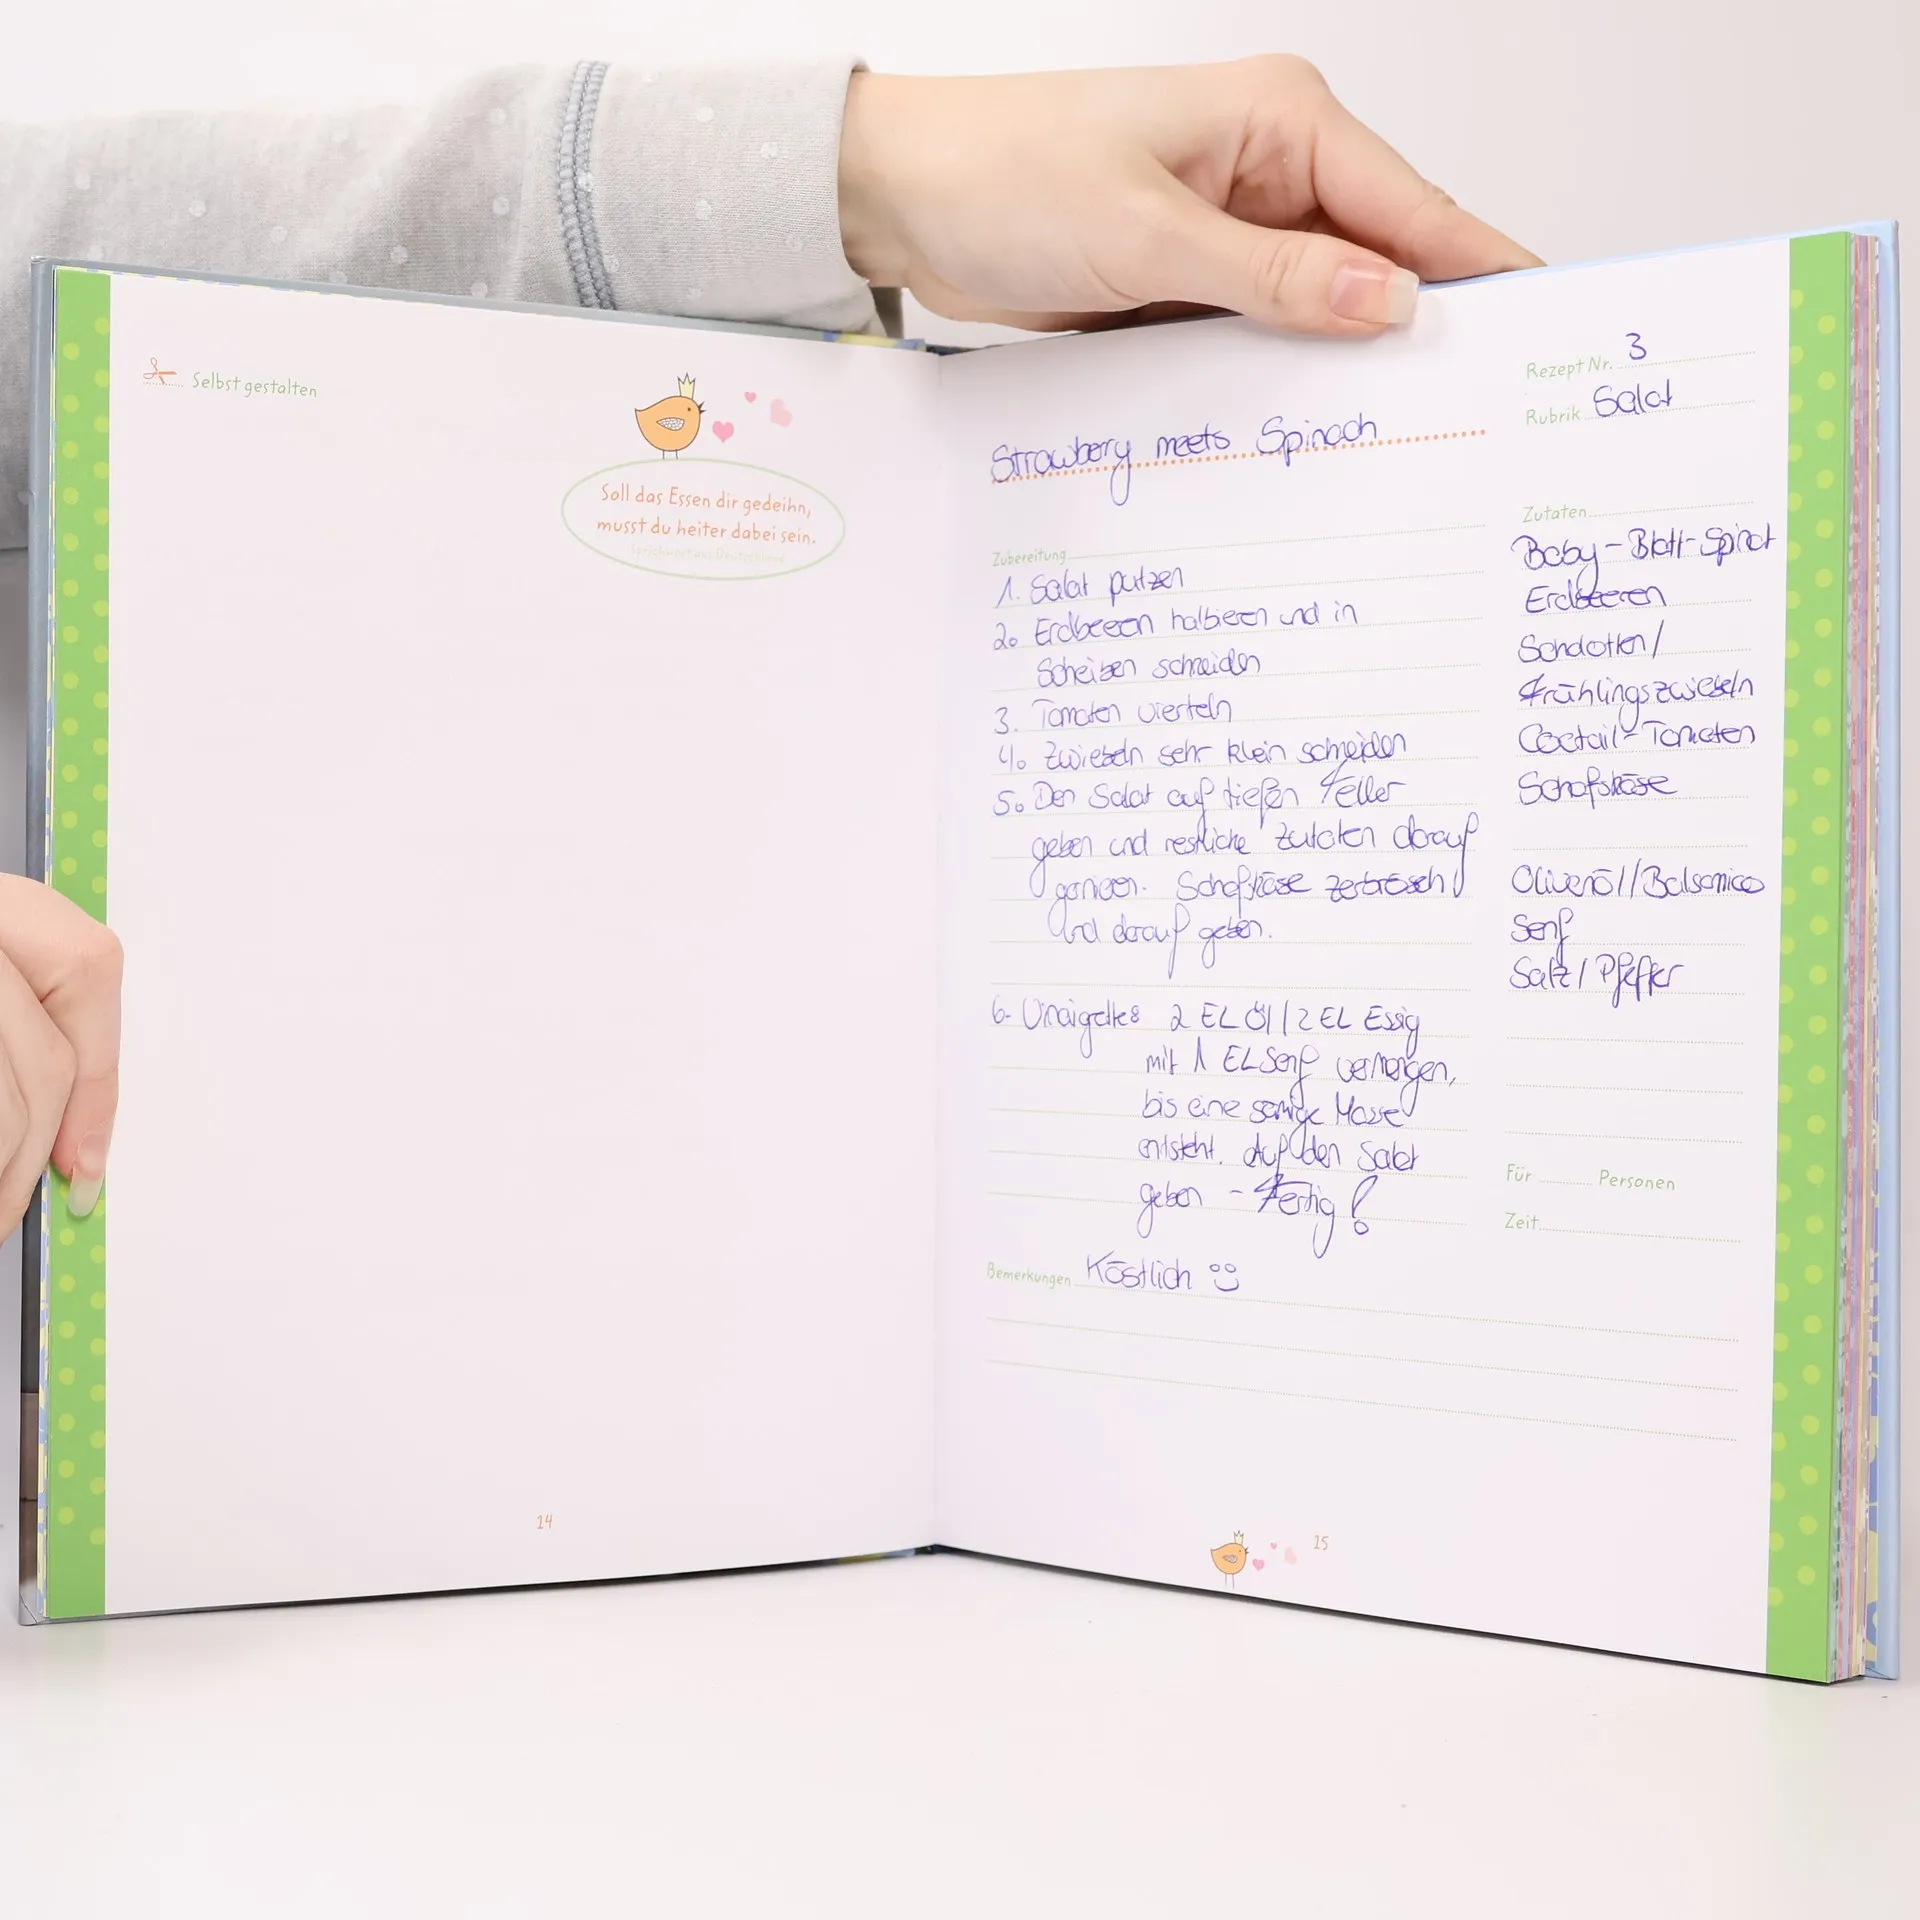 Selbst gestalten
Soll das Essen dir gedeihn,
musst du heiter dabei sein.
Sprichwort aus Deutschland
14
Rezept Nr. 3
Rubrik Salat
Strawberry meets Spinach
Zubereitung
1. Salat putzen
2. Erdbeeren halbieren und in
Scheiben schneiden
3. Tomaten vierteln
4. Zwiebeln sehr klein schneiden
5. Den Salat auf tiefen Teller
geben und restliche Zutaten darauf
garnieren. Schafskäse zerbröseln
und darauf geben.
6. Vinaigrette: 2 EL Öl / 2 EL Essig
mit 1 EL Senf vermengen,
bis eine sämige Masse
entsteht. Auf den Salat
geben - Fertig!
Zutaten
Baby-Blatt-Spinat
Erdbeeren
Schalotten/
Frühlingszwiebeln
Coctail-Tomaten
Schafskäse
Olivenöl/Balsamico
Senf
Salz / Pfeffer
Für Personen
Zeit
Bemerkungen Köstlich
15